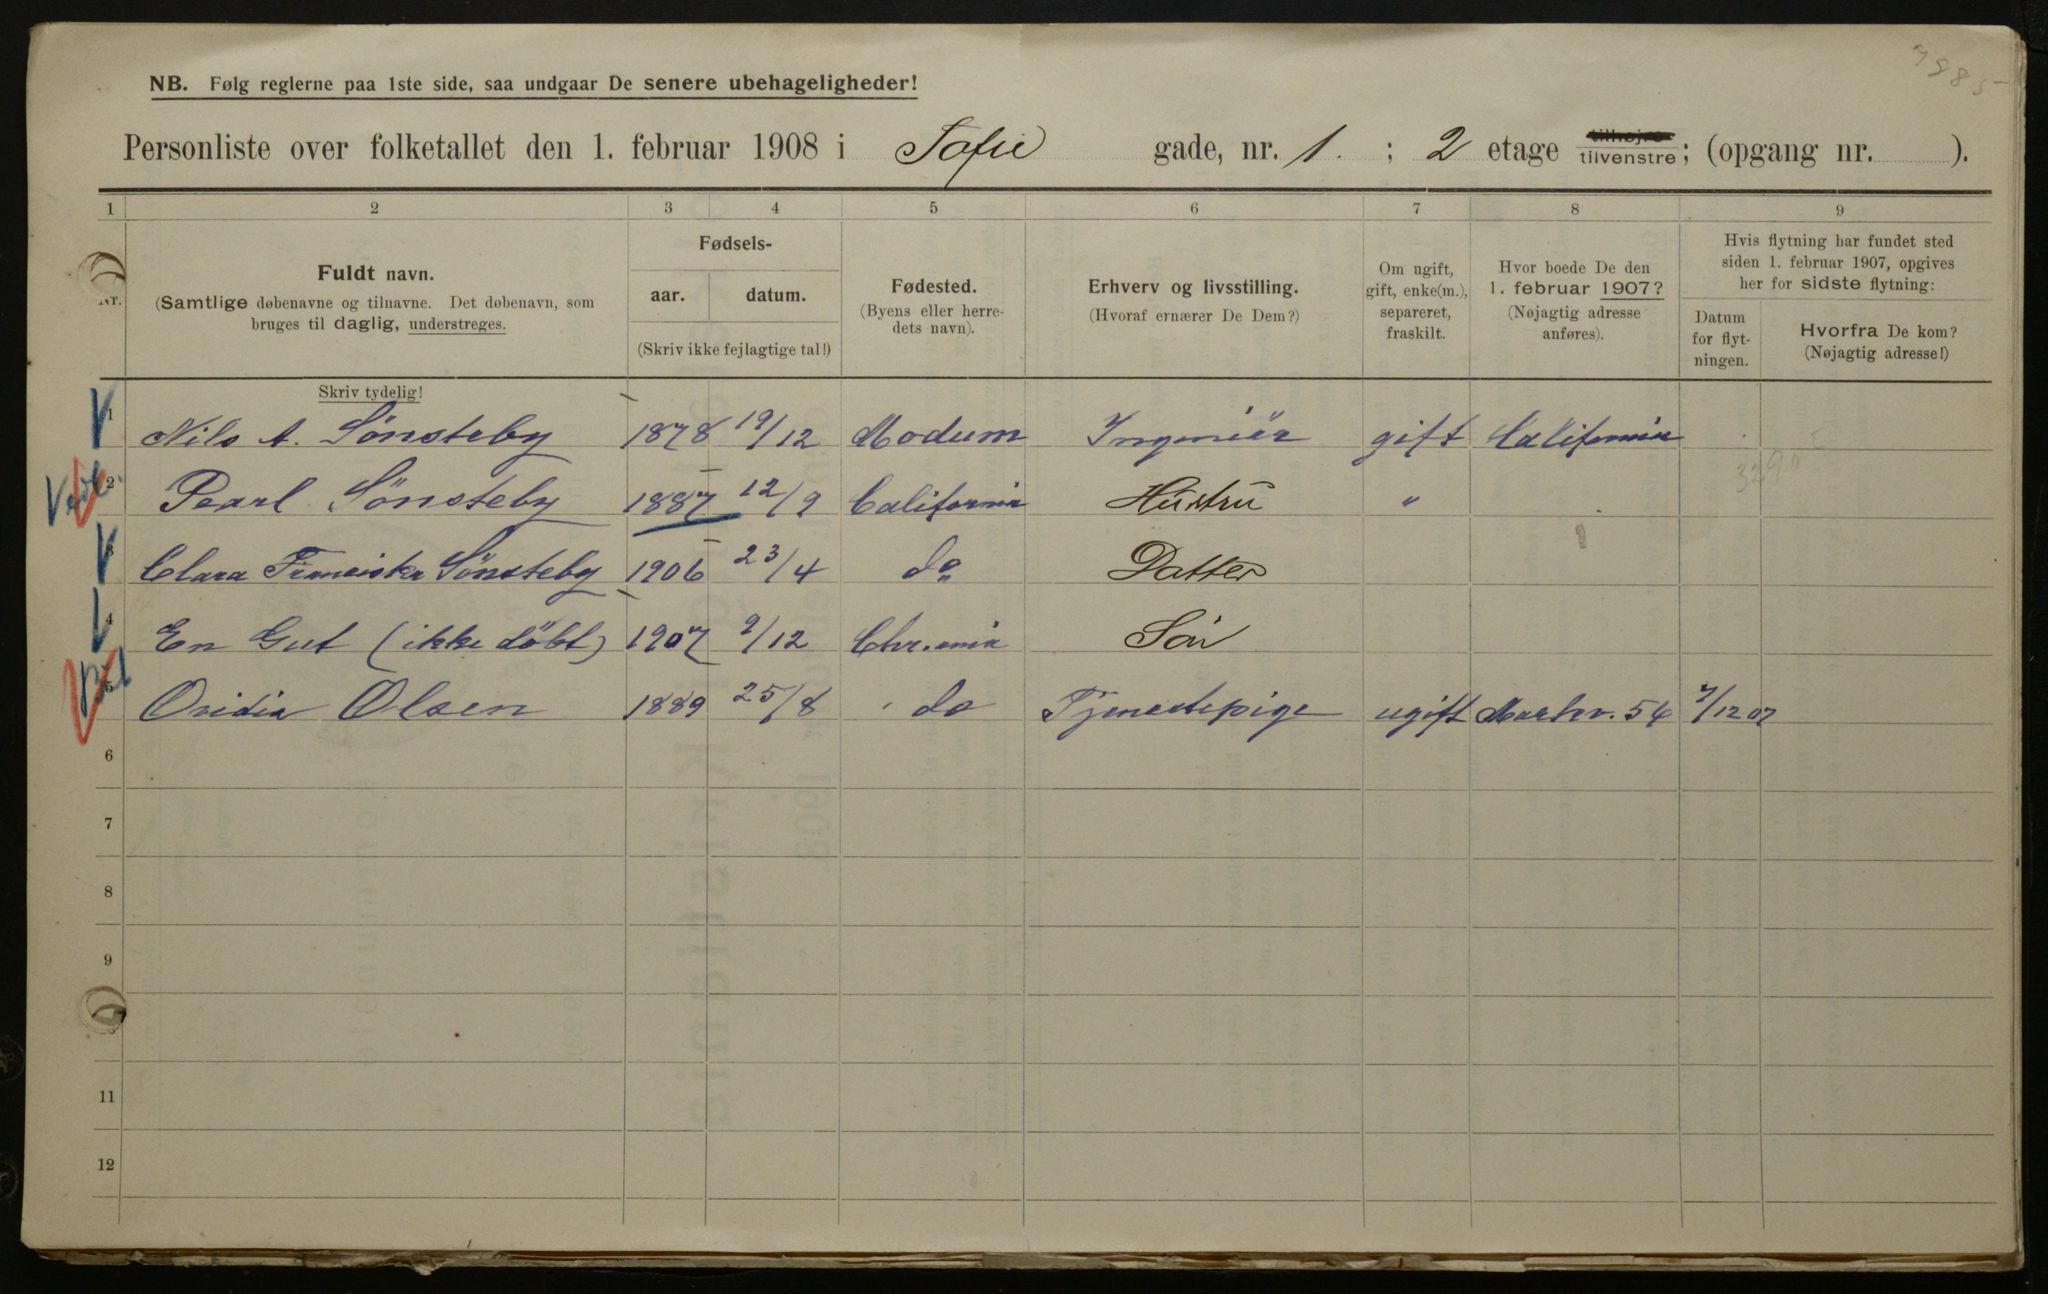 7985
NB. Følg reglerne paa 1ste side, saa undgaar De senere ubehageligheder!
Personliste over folketallet den 1. februar 1908 i Sofie gade, nr. 1. ; 2 etage tilhøjre tilvenstre; (opgang nr. ).
1 2 3 4 5 6 7 8 9
Nr.
Fuldt navn.
(Samtlige døbenavne og tilnavne. Det døbenavn, som
bruges til daglig, understreges.
Skriv tydelig!
Fødsels-
aar. datum.
(Skriv ikke fejlagtige tal!)
Fødested.
(Byens eller herre-
dets navn).
Erhverv og livsstilling.
(Hvoraf ernærer De Dem?)
Om ugift,
gift, enke(m.),
separeret,
fraskilt.
Hvor boede De den
1. februar 1907?
(Nøjagtig adresse
anføres).
Hvis flytning har fundet sted
siden 1. februar 1907, opgives
her for sidste flytning:
Datum
for flyt-
ningen.
Hvorfra De kom?
(Nøjagtig adresse!)
1 Nils A. Sönsteby 1878 19/12 Modum Ingeniör gift California
3290
2 Pearl Sönsteby 1887 12/9 California Hustru "
3 Clara Franciska Sönsteby 1906 23/4 do Datter
4 En Gut (ikke döbt) 1907 9/12 Chr.ania Sön
5 Ovidia Olsen 1889 25/8 do Tjenestepige ugift Markv. 54 7/12 07
6
7
8
9
11
12